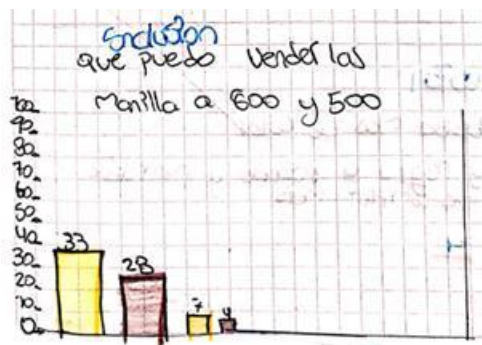 Conclusion
que puedo vender las
Manilla a 600 y 500
100
90
80
70
60
50
40
30
20
10
0
33
28
7
4